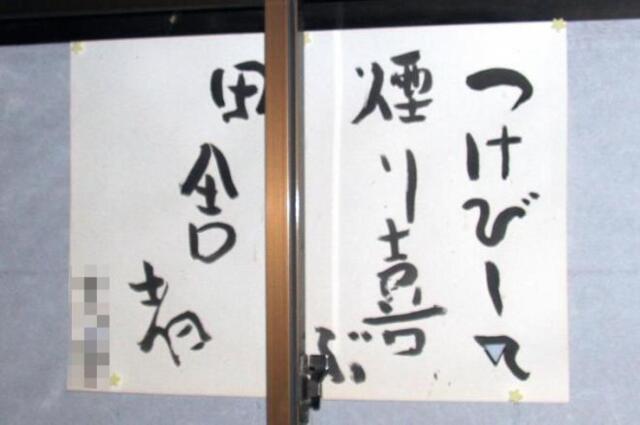 つけびーして
煙り喜ぶ
田舎者